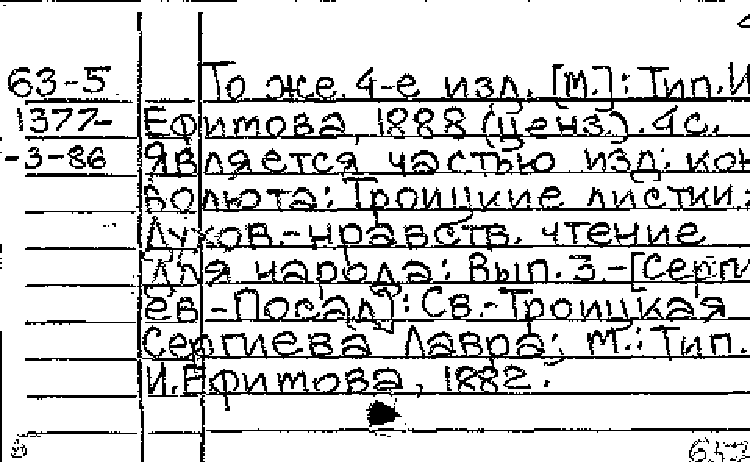 63-5 То же. 4-е изд. [М.]: Тип. И
1377- Ефимова, 1888 (ценз.). 4с.
-3-86 Является частью изд: кон
волюта: Троицкие листки:
Духов.-нравств. чтение
для народа: Вып. 3.-[Серги
ев-Посад]: Св.-Троицкая
Сергиева Лавра; М.: Тип.
И. Ефимова, 1882.